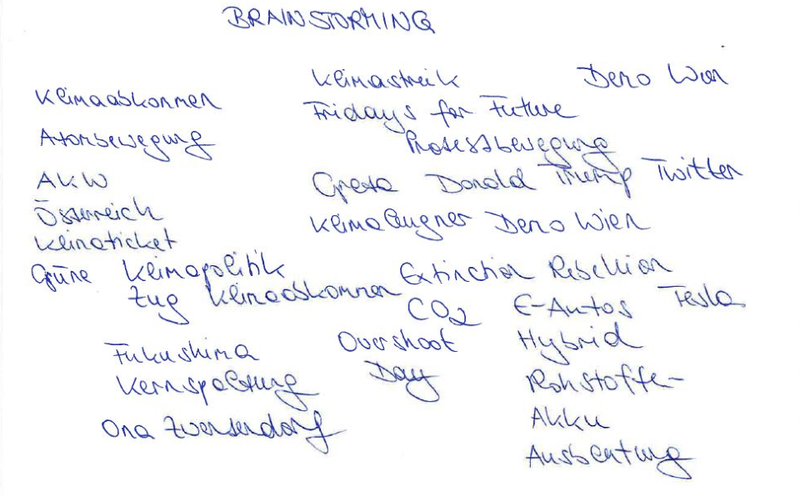 BRAINSTORMING
Klimastreik Demo Wien
Klimaabkommen
Fridays for Future
Atombewegung
Protestbewegung
AKW
Greta Donald Trump Twitter
Österreich
Klimaleugner Demo Wien
Klimaticket
Grüne Klimapolitik Extinction Rebellion
Zug Klimaabkommen
CO2 E-Autos Tesla
Fukushima Overshoot Hybrid
Kernspaltung Day Rohstoffe-
Oma Zwentendorf Akku
Ausbeutung